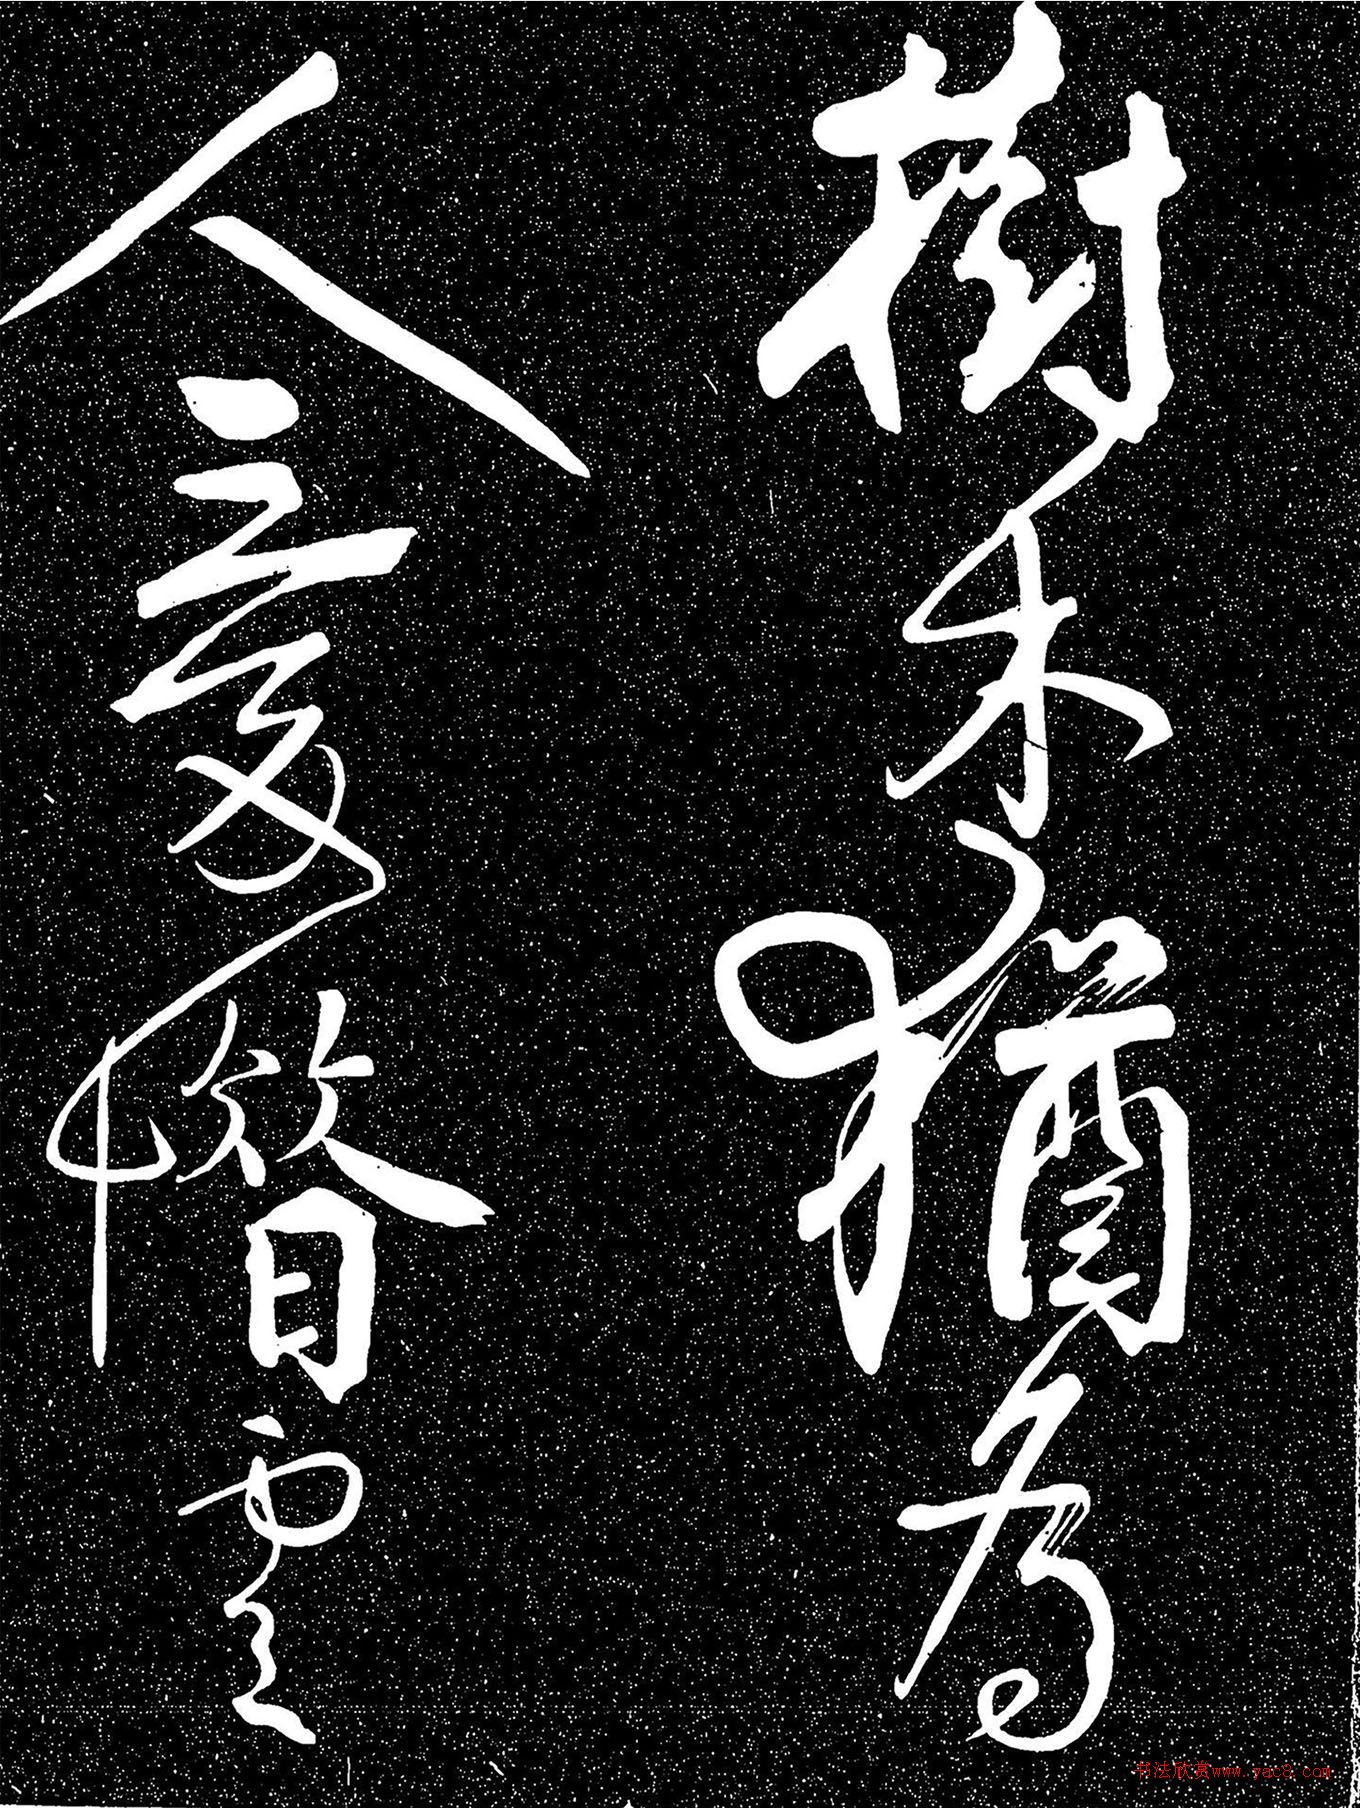 樹木猶為
人愛惜雲
书法欣赏www.yac8.com